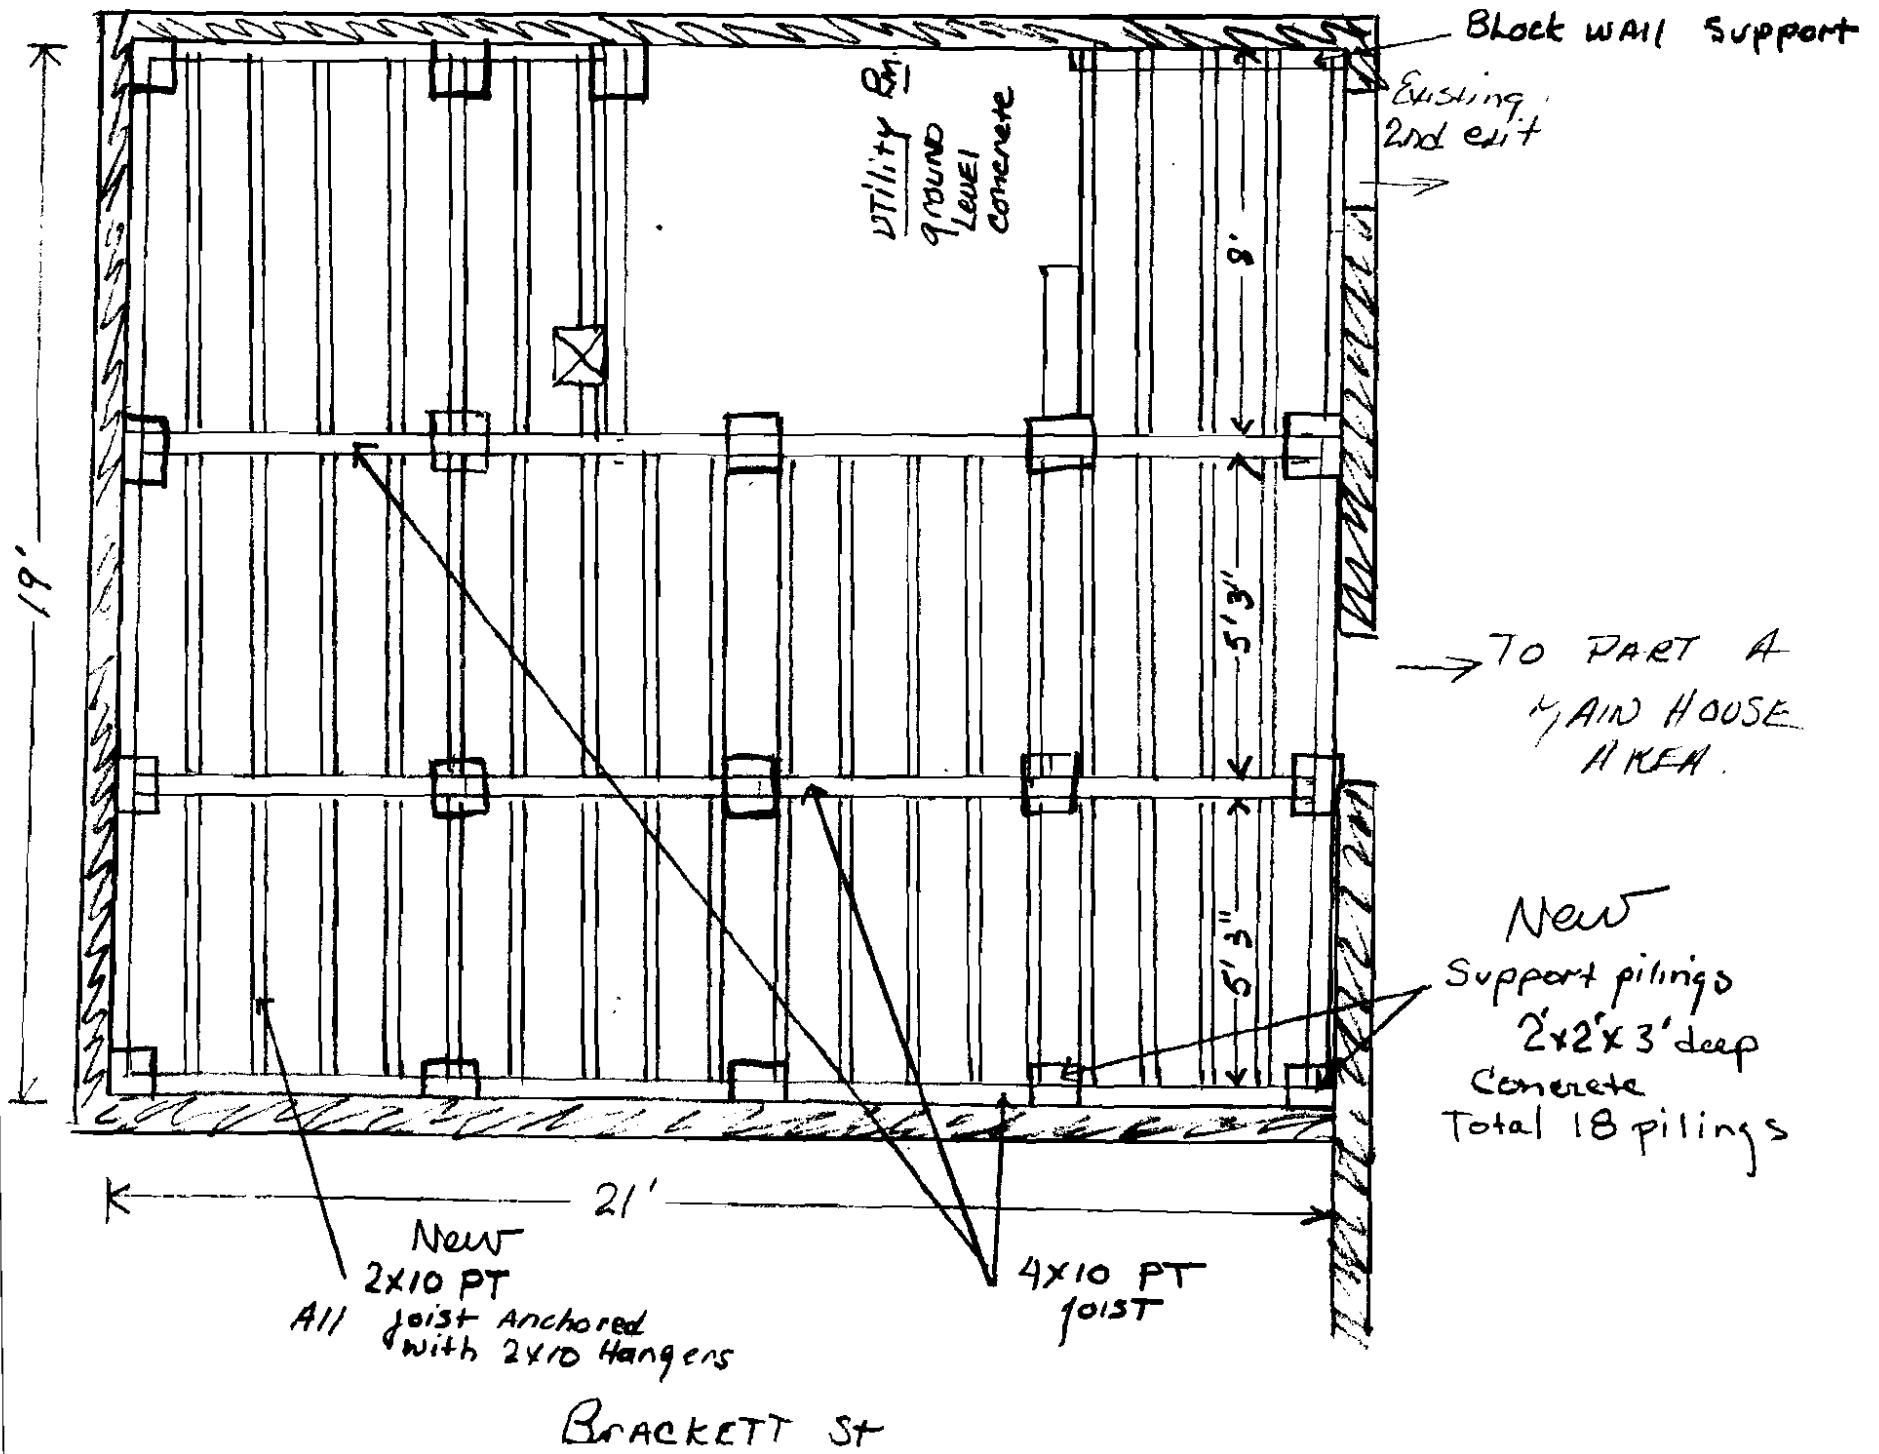 Block WAll Support
Existing
2nd exit
Utility Rm.
ground
Level
concrete
8'
19'
5' 3"
TO PART A
MAIN HOUSE
AREA.
5' 3"
New
Support pilings
2'x2'x3' deep
Concrete
Total 18 pilings
21'
New
2x10 PT
All joist Anchored
with 2x10 Hangers
4x10 PT
joist
BrACKETT St